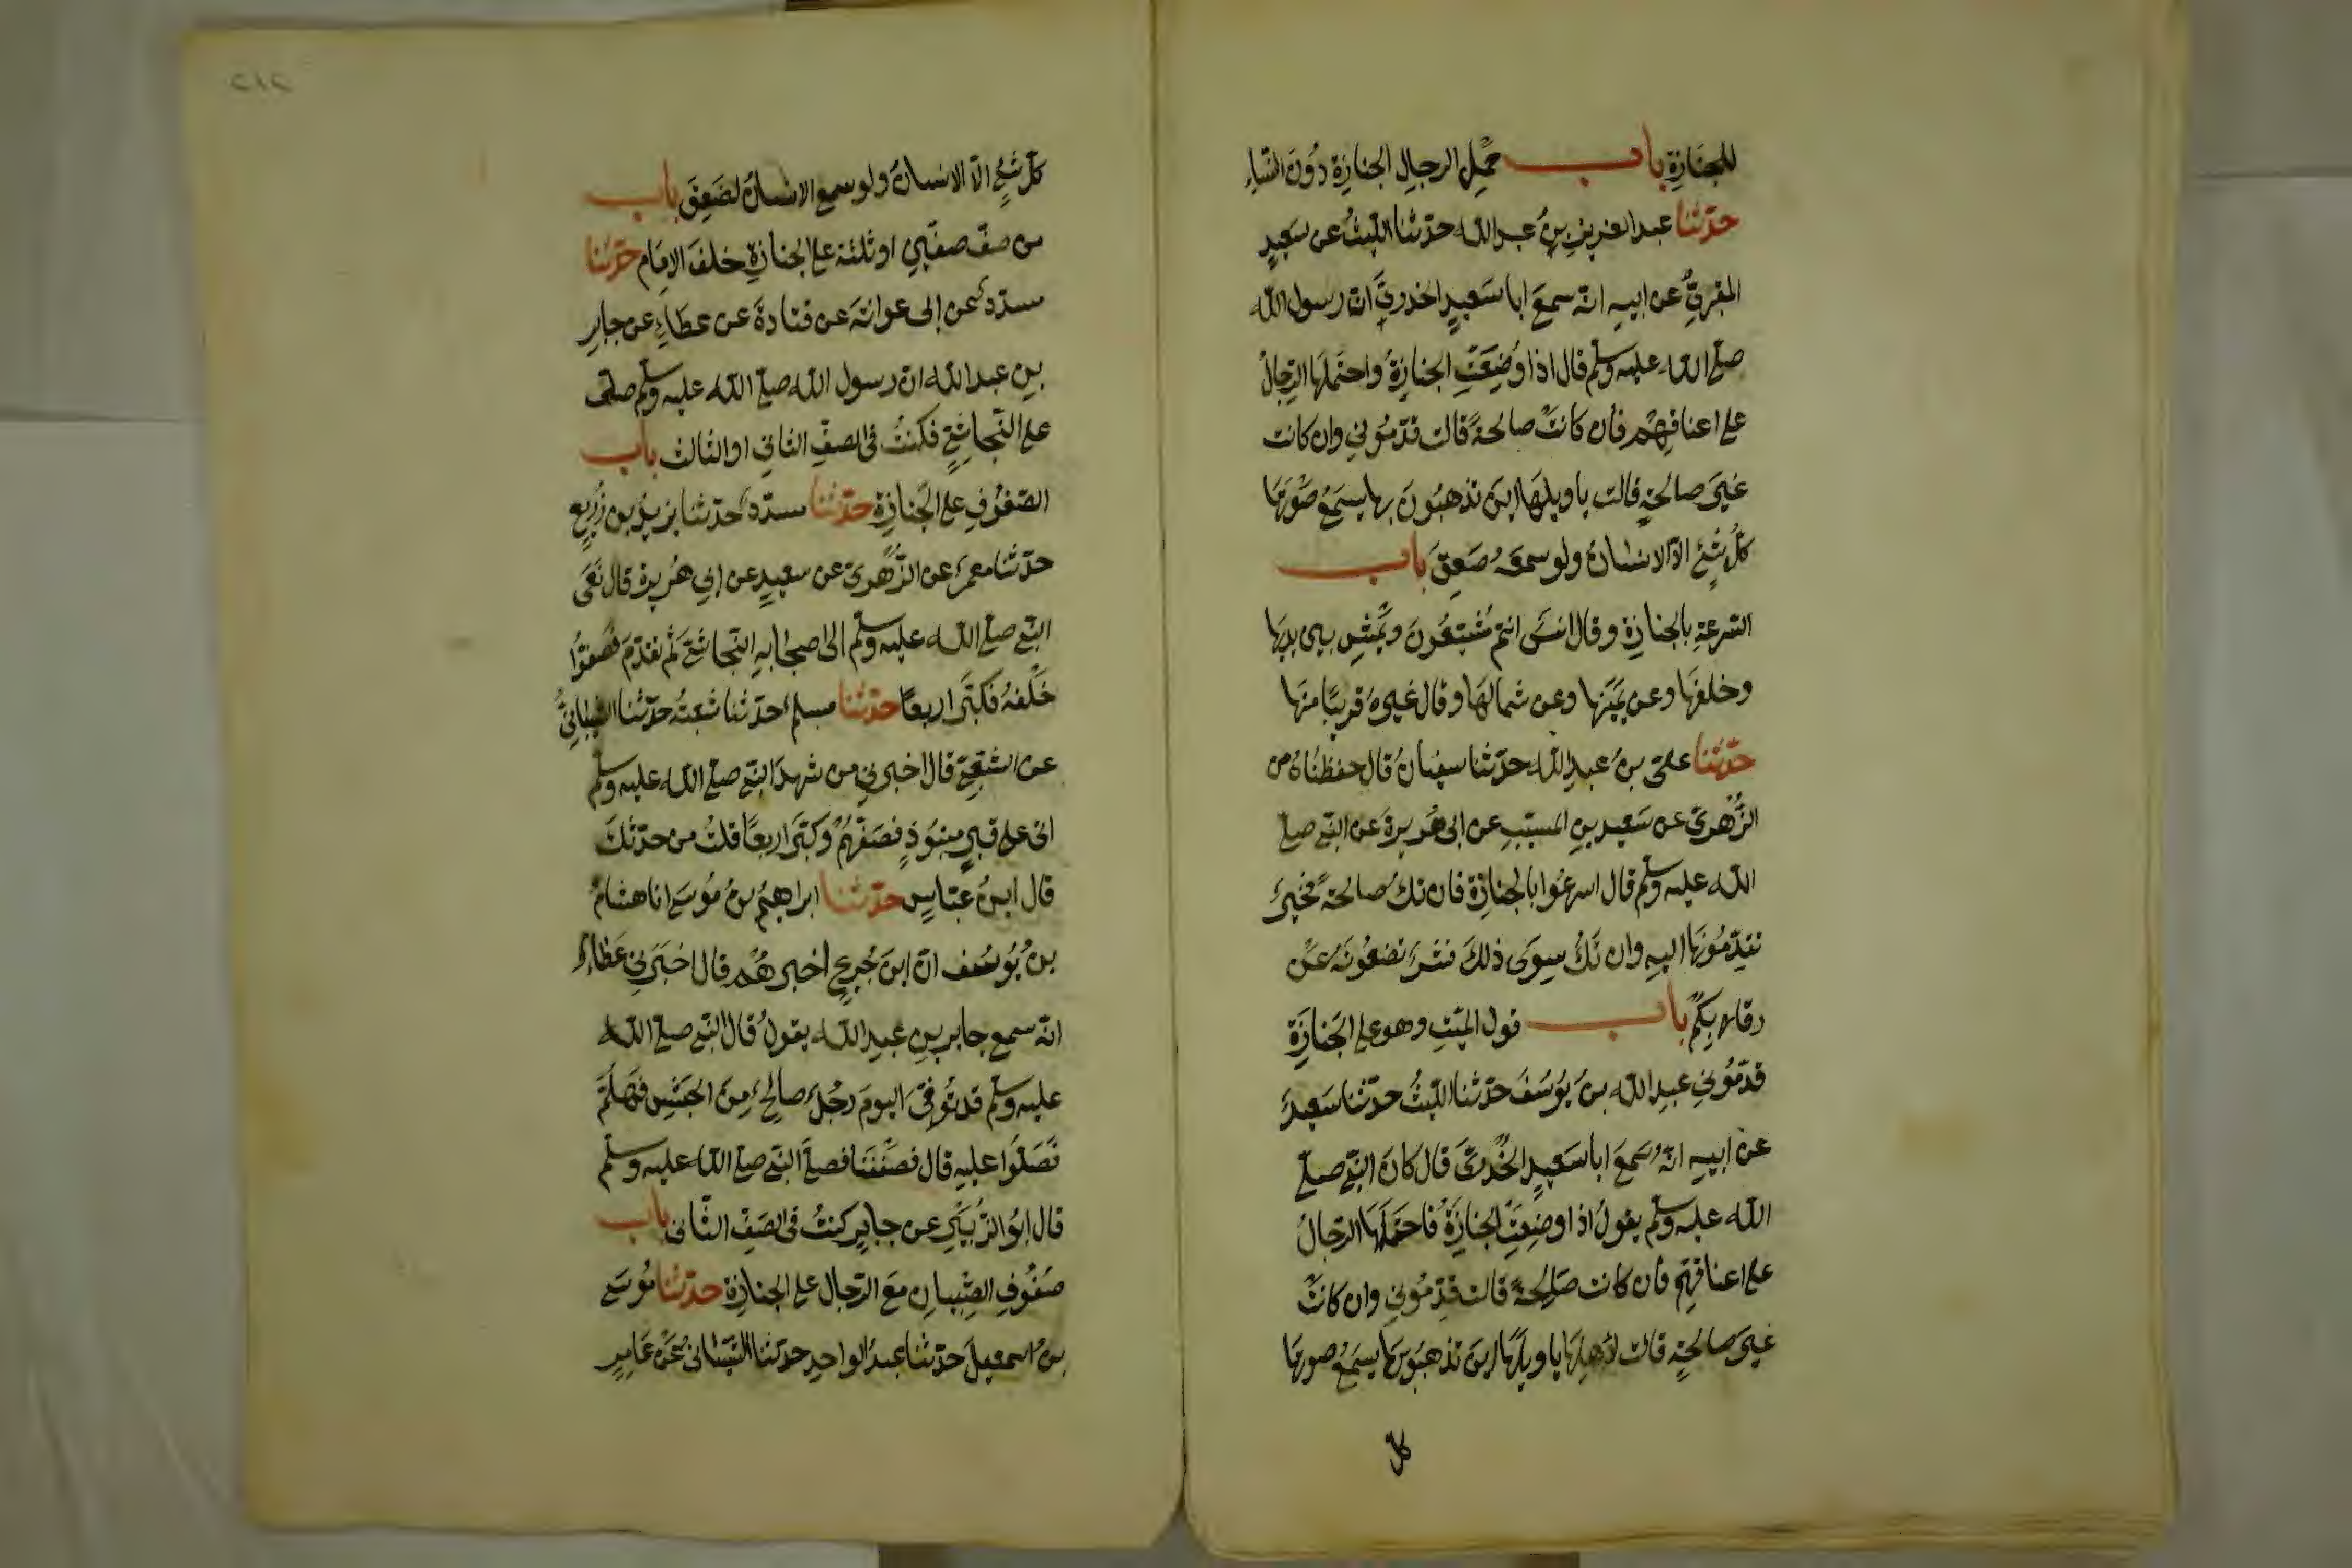 للجنازة باب حمل الرجال الجنازة دون النساء
حدثنا عبد العزيز بن عبد الله حدثنا الليث عن سعيد
المقبري عن ابيه انه سمع ابا سعيد الخدري ان رسول الله
صلى الله عليه وسلم قال اذا وضعت الجنازة واحتملها الرجال
على اعناقهم فان كانت صالحة قالت قدموني وان كانت
غير صالحة قالت يا ويلها اين تذهبون بها يسمع صوتها
كل شئ الا الانسان ولو سمعه صعق باب
السرعة بالجنازة وقال انس انتم مشيعون وتمشي بين يديها
وخلفها وعن يمينها وعن شمالها وقال غيره قريبا منها
حدثنا علي بن عبد الله حدثنا سفيان قال حفظناه من
الزهري عن سعيد بن المسيب عن ابى هريرة عن النبي صلى
الله عليه وسلم قال اسرعوا بالجنازة فان تك صالحة فخير
تقدمونها اليه وان تك سوى ذلك فشر تضعونه عن
رقابكم باب قول الميت وهو على الجنازة
قدموني عبد الله بن يوسف حدثنا الليث حدثنا سعيد
عن ابيه انه سمع ابا سعيد الخدري قال كان النبي صلى
الله عليه وسلم يقول اذا وضعت الجنازة فاحتملها الرجال
على اعناقهم فان كانت صالحة قالت قدموني وان كانت
غير صالحة قالت لاهلها يا ويلها اين تذهبون بها يسمع صوتها
كل
٢١٢
كل شئ الا الانسان ولو سمع الانسان لصعق باب
من صف صفين او ثلثة على الجنازة خلف الامام حدثنا
مسدد عن ابى عوانة عن قتادة عن عطاء عن جابر
بن عبد الله ان رسول الله صلى الله عليه وسلم صلى
على النجاشي فكنت فى الصف الثاني او الثالث باب
الصفوف على الجنازة حدثنا مسدد حدثنا يزيد بن زريع
حدثنا معمر عن الزهري عن سعيد عن ابي هريرة قال نعى
النبي صلى الله عليه وسلم الى اصحابه النجاشي ثم تقدم فصفوا
خلفه فكبر اربعا حدثنا مسلم حدثنا شعبة حدثنا الشيباني
عن الشعبي قال اخبرني من شهد النبي صلى الله عليه وسلم
اتى على قبر منبوذ فصفهم وكبر اربعا قلت من حدثك
قال ابن عباس حدثنا ابراهيم بن موسى انا هشام
بن يوسف ان ابن جريج اخبرهم قال اخبرني عطاء
انه سمع جابر بن عبد الله يقول قال النبي صلى الله
عليه وسلم قد توفى اليوم رجل صالح من الحبش فهلم
فصلوا عليه قال فصففنا فصلى النبي صلى الله عليه وسلم
قال ابو الزبير عن جابر كنت فى الصف الثانى باب
صفوف الصبيان مع الرجال على الجنازة حدثنا موسى
بن اسمعيل حدثنا عبد الواحد حدثنا الشيبانى عن عامر